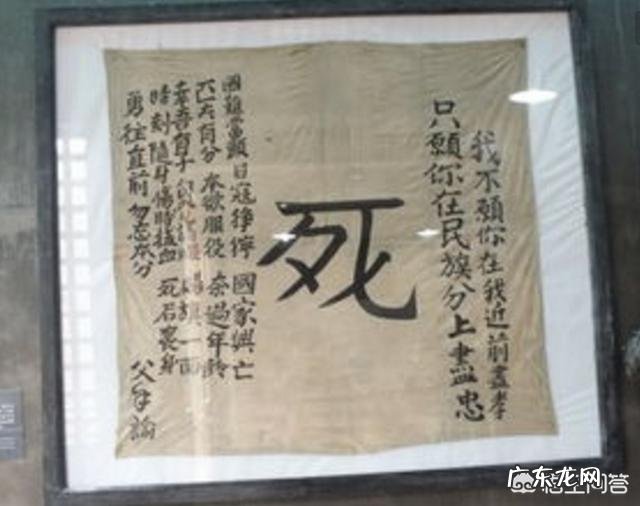 我不願你在我近前盡孝
只願你在民族分上盡忠
死
國難當頭 日寇猙獰 國家興亡
匹夫有分 本欲服役 奈過年齡
幸吾有子 自 賜旗一面
時刻隨身 傷時拭血 死后裹身
勇往直前 勿忘本分 父手諭
广东龙网
悟空问答